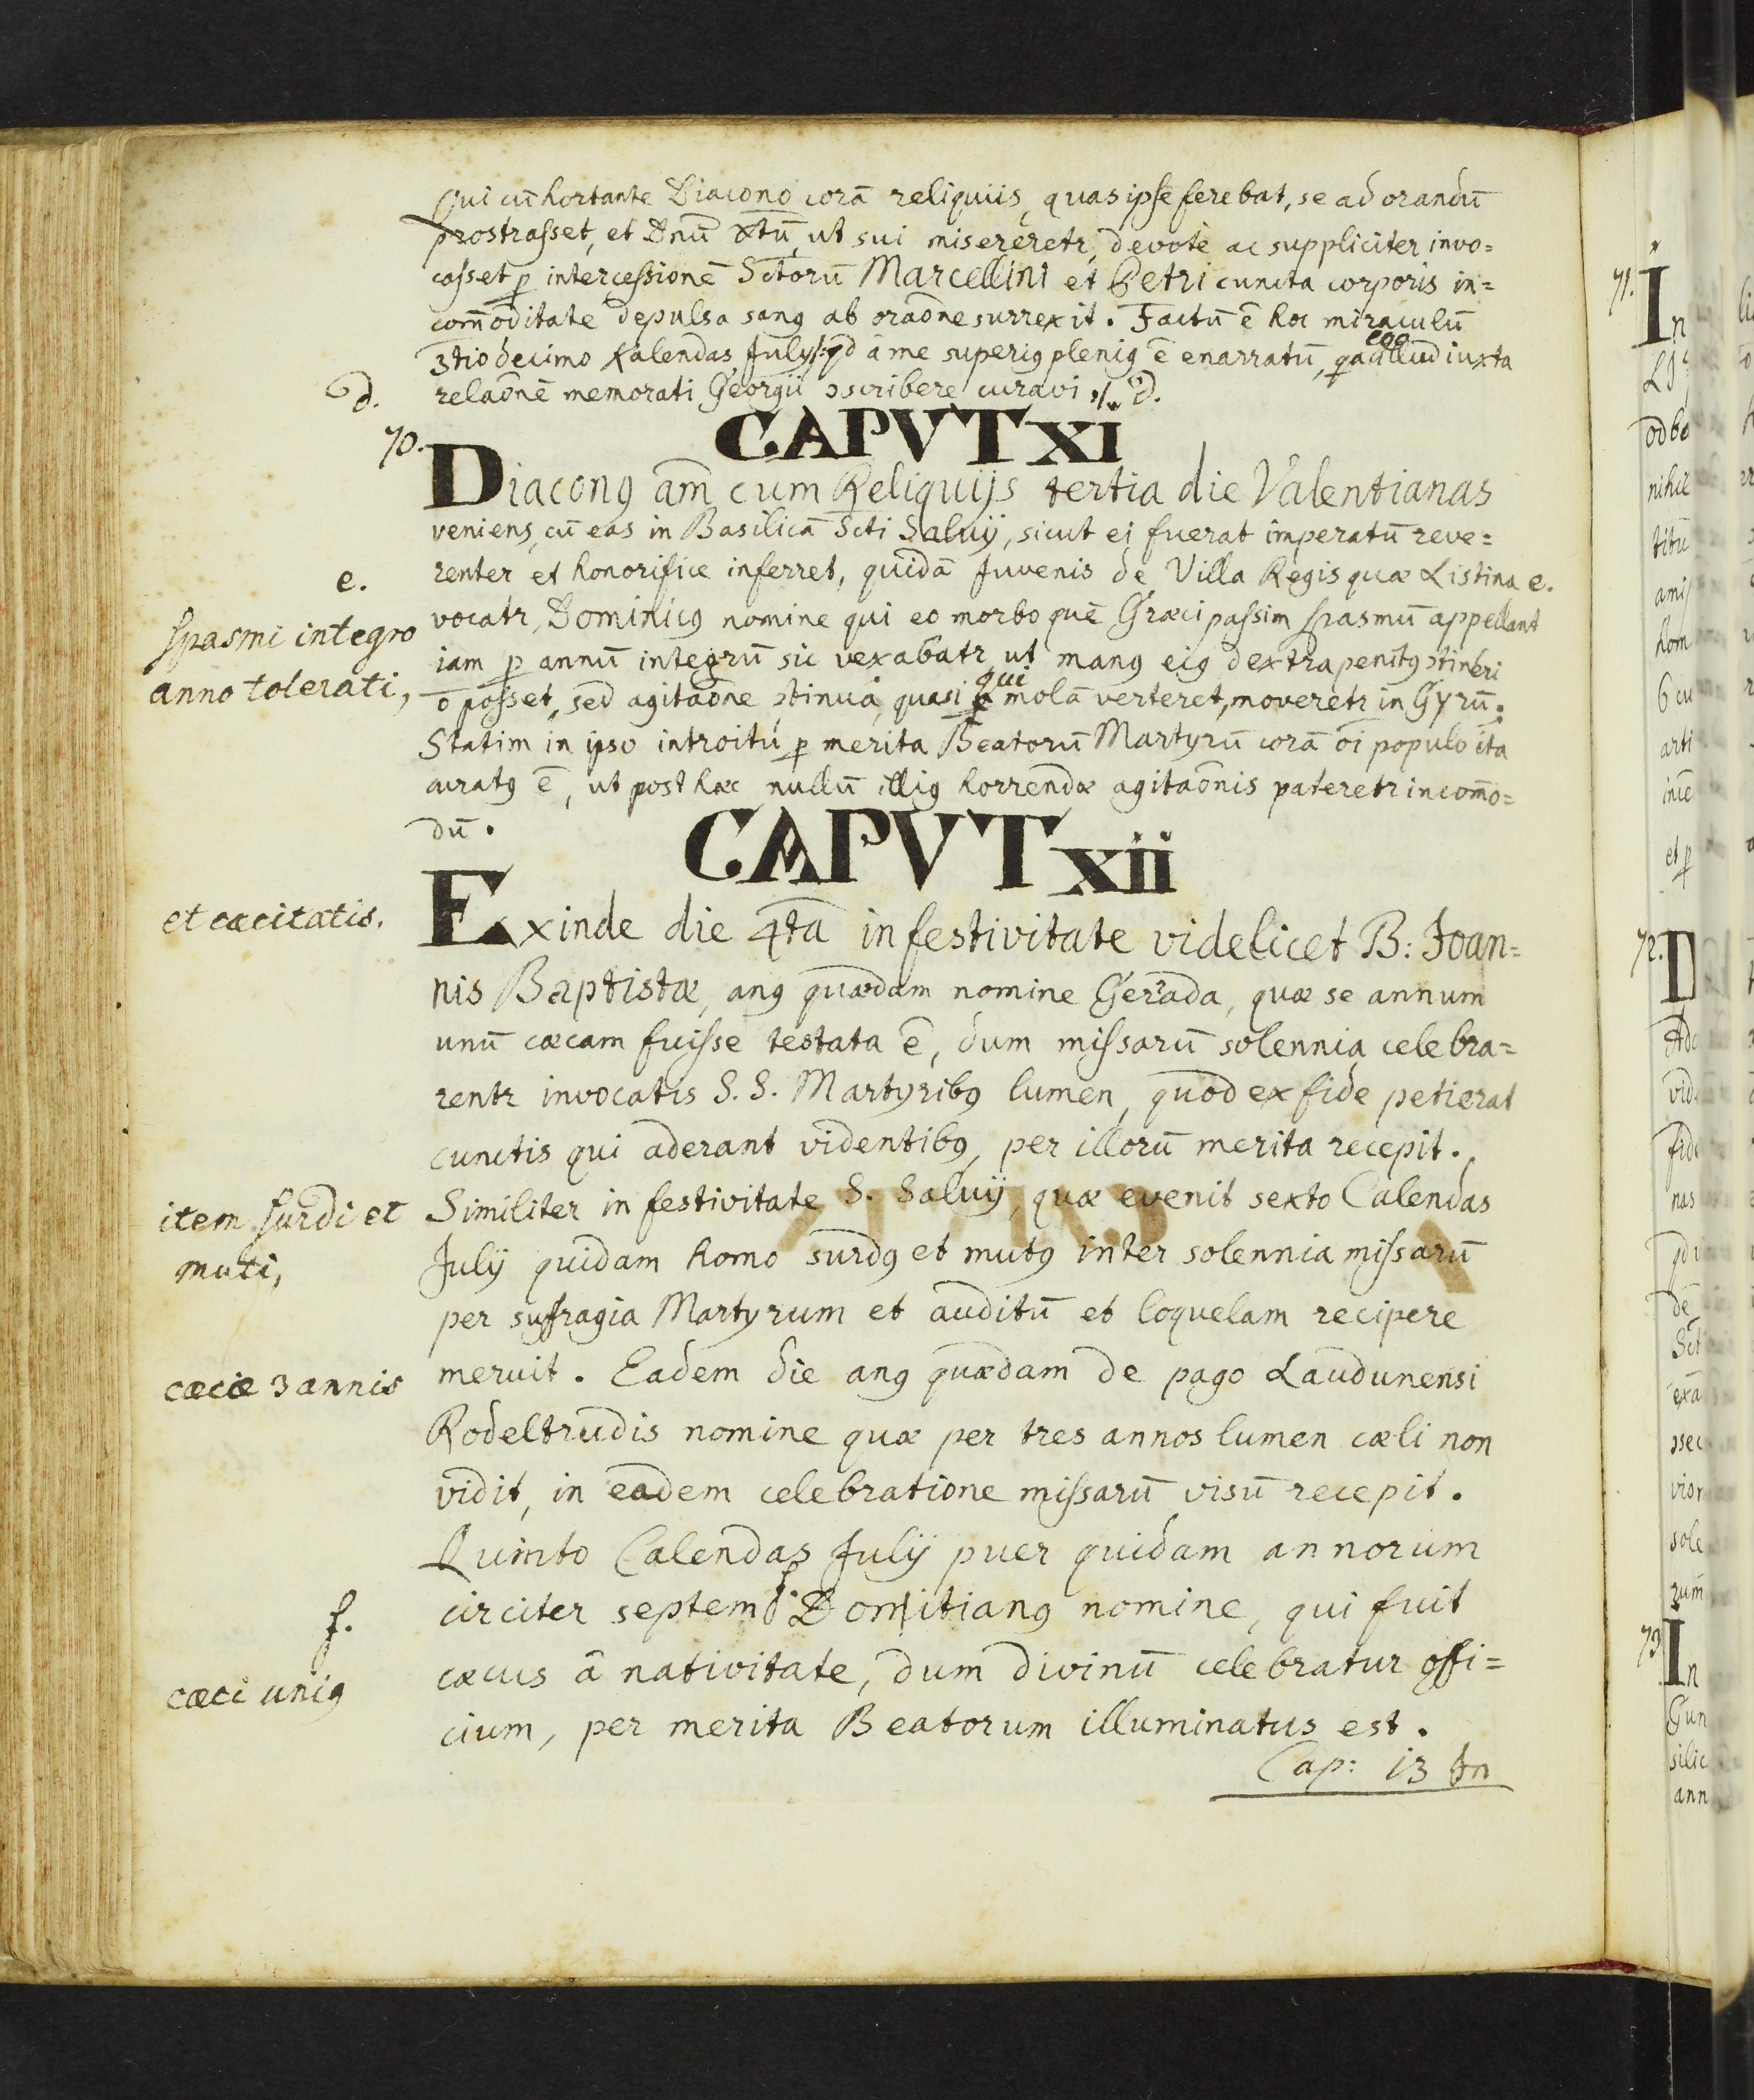 Qui cū hortante Diacono corā reliquiis, quas ipse ferebat, se ad orandū
prostrasset, et Dnū Xtū, ut sui misereretr, devotè ac suppliciter invo=
casset p intercessionē Sctorū Marcellini et Petri cuncta corporis in=
com̄oditate depulsa sanꝯ ab oraōne surrexit. Factū ē hoc miraculū
3tio decimo Kalendas July: qd à me superiꝯ pleniꝯ ē enarratū,
ego
illud iuxta
d. relaōnē memorati Georgii ɔscribere curavi ./. d.
CAPVT XI
70. Diaconꝯ am̄ cum Reliquijs tertia die Valentianas
veniens, cū eas in Basilicā Scti Salvij, sicut ei fuerat imperatū reve=
e. renter et honorifice inferret, quidā Juvenis de Villa Regis quæ Listina e.
spasmi integro vocatr, Dominicꝯ nomine qui eo morbo quē Græci passim spasmū appellant
anno tolerati, iam p annū integrū sic vexabatr ut manꝯ eiꝯ dextra penitꝯ ɔtineri
qui
ō posset, sed agitaōne ɔtinuā, quasi molā verteret, moveretr in Gyrū.
Statim in ipso introitú p merita Beatorū Martyrū corā oī populo ita
curatꝯ ē, ut post hæc nullū illiꝯ horrendæ agitaōnis pateretr incom̄o=
dū.
CAPVT xii
et cæcitatis. Exinde die 4tā in festivitate videlicet B: Joan=
nis Baptistæ, anꝯ quædam nomine Gerrada, quæ se annum
unū cæcam fuisse testata ē, dum missarū solennia celebra=
rentr invocatis S. S. Martyribꝯ lumen, quod ex fide petierat
cunctis qui aderant videntibꝯ, per illorū merita recepit.
item surdi et Similiter in festivitate S. Salvij, quæ evenit sexto Calendas
muti, Julij quidam homo surdꝯ et mutꝯ inter solennia missarū
per suffragia Martyrum et auditū et loquelam recipere
cæcæ 3 annis meruit. Eadem die anꝯ quædam de pago Laudunensi
Rodeltrudis nomine quæ per tres annos lumen cæli non
vidit, in eadem celebratione missarū visū recepit.
Quinto Calendas Julij puer quidam annorum
f. circiter septem f. Domitianꝯ nomine, qui fuit
cæci uniꝯ cæcus à nativitate, dum divinū celebratur offi=
cium, per merita Beatorum illuminatus est.
Cap: 13 In
71. In
odbo
nihil
titū
ami
hom
arti
et p
72.
vid
fide
nus
dē
Sct
exā
ɔsec
vior
sole
rum
73 In
Gun
silic
ann